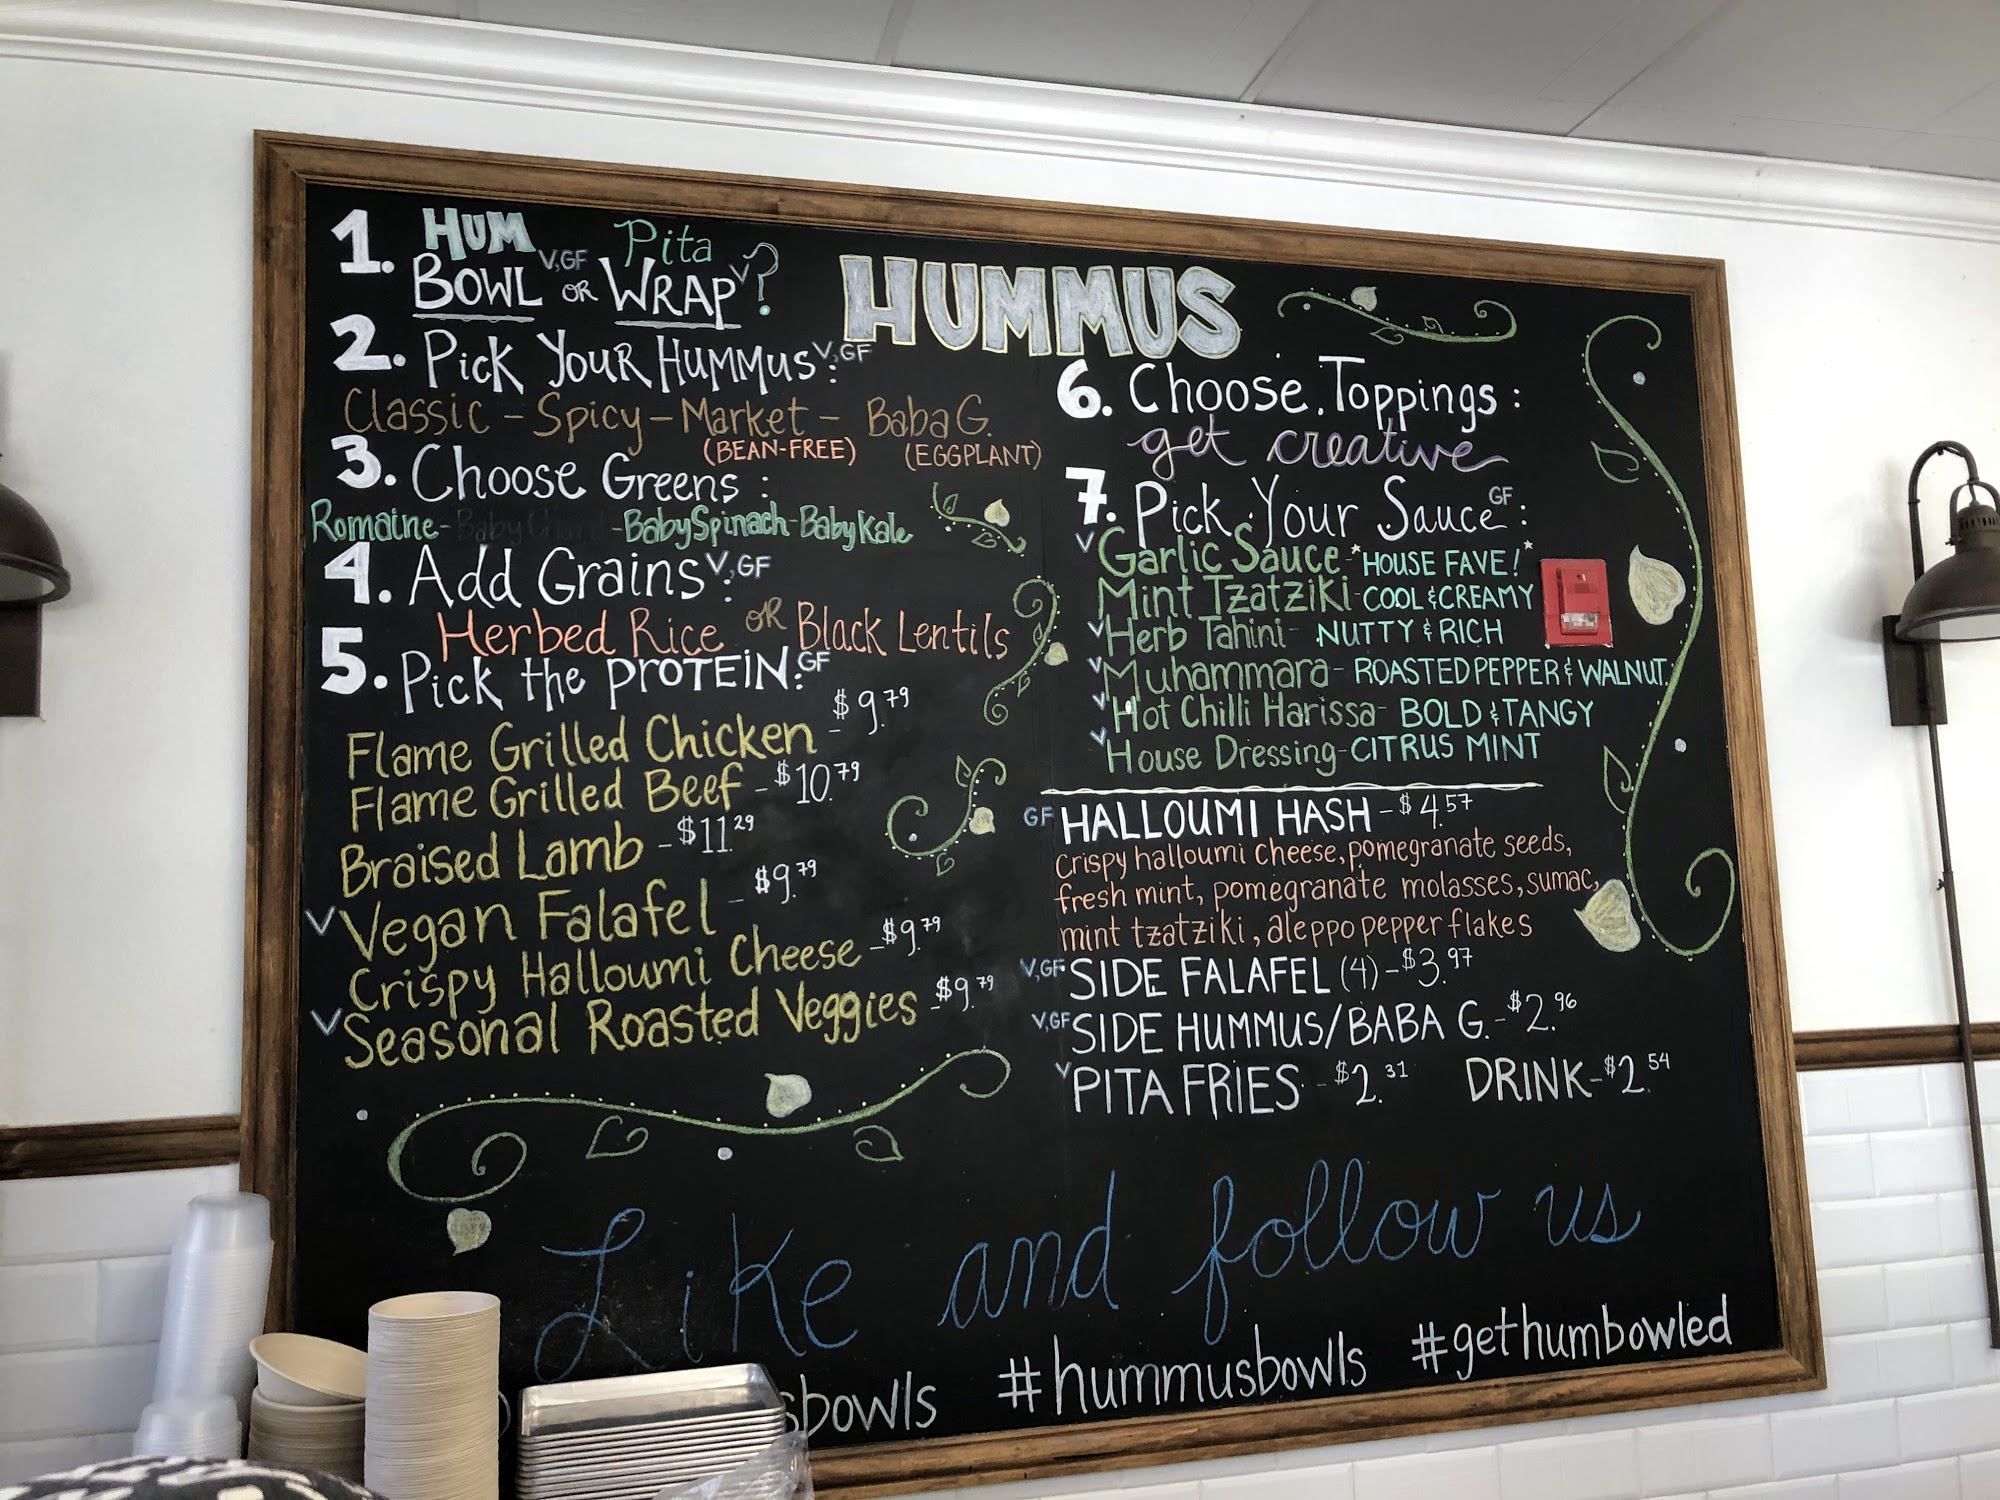 HUMMUS
1. HUM BOWL V,GF OR Pita WRAP V?
2. Pick Your Hummus: V,GF
Classic - Spicy - Market - Baba G.
(BEAN-FREE) (EGGPLANT)
3. Choose Greens:
Romaine - Baby Chard - Baby Spinach - Baby Kale
4. Add Grains: V,GF
Herbed Rice OR Black Lentils
5. Pick the PROTEIN: GF
Flame Grilled Chicken - $9.79
Flame Grilled Beef - $10.79
Braised Lamb - $11.29
V Vegan Falafel - $9.79
Crispy Halloumi Cheese - $9.79
V Seasonal Roasted Veggies - $9.79
6. Choose Toppings:
get creative
7. Pick Your Sauce GF:
V Garlic Sauce - *HOUSE FAVE!*
Mint Tzatziki - COOL & CREAMY
V Herb Tahini - NUTTY & RICH
V Muhammara - ROASTED PEPPER & WALNUT
V Hot Chilli Harissa - BOLD & TANGY
V House Dressing - CITRUS MINT
GF HALLOUMI HASH - $4.57
Crispy halloumi cheese, pomegranate seeds,
fresh mint, pomegranate molasses, sumac,
mint tzatziki, aleppo pepper flakes
V,GF SIDE FALAFEL (4) - $3.97
V,GF SIDE HUMMUS/BABA G. - $2.96
V PITA FRIES - $2.31 DRINK - $2.54
Like and follow us
sbowls #hummusbowls #gethumbowled